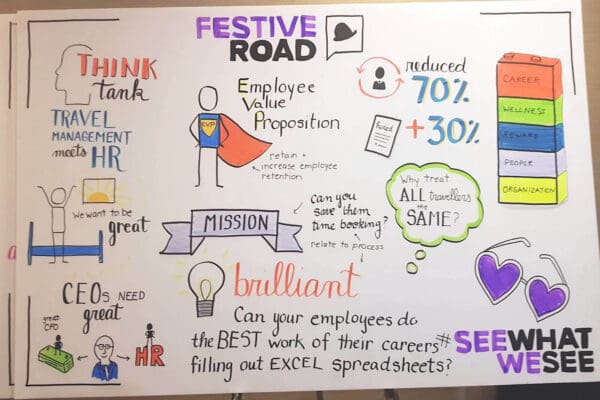 FESTIVE
ROAD
THINK
tank
TRAVEL
MANAGEMENT
meets HR
We want to be
great
CEOs NEED
great
great
CFO
HR
EVP
Employee
Value
Proposition
retain +
increase employee
retention
MISSION
can you
save them
time booking?
relate to process
brilliant
Can your employees do
the BEST work of their careers
filling out EXCEL spreadsheets?
reduced
70%
+30%
Why treat
ALL travellers
the
SAME?
CAREER
WELLNESS
REWARD
PEOPLE
ORGANIZATION
#SEEWHAT
WESEE